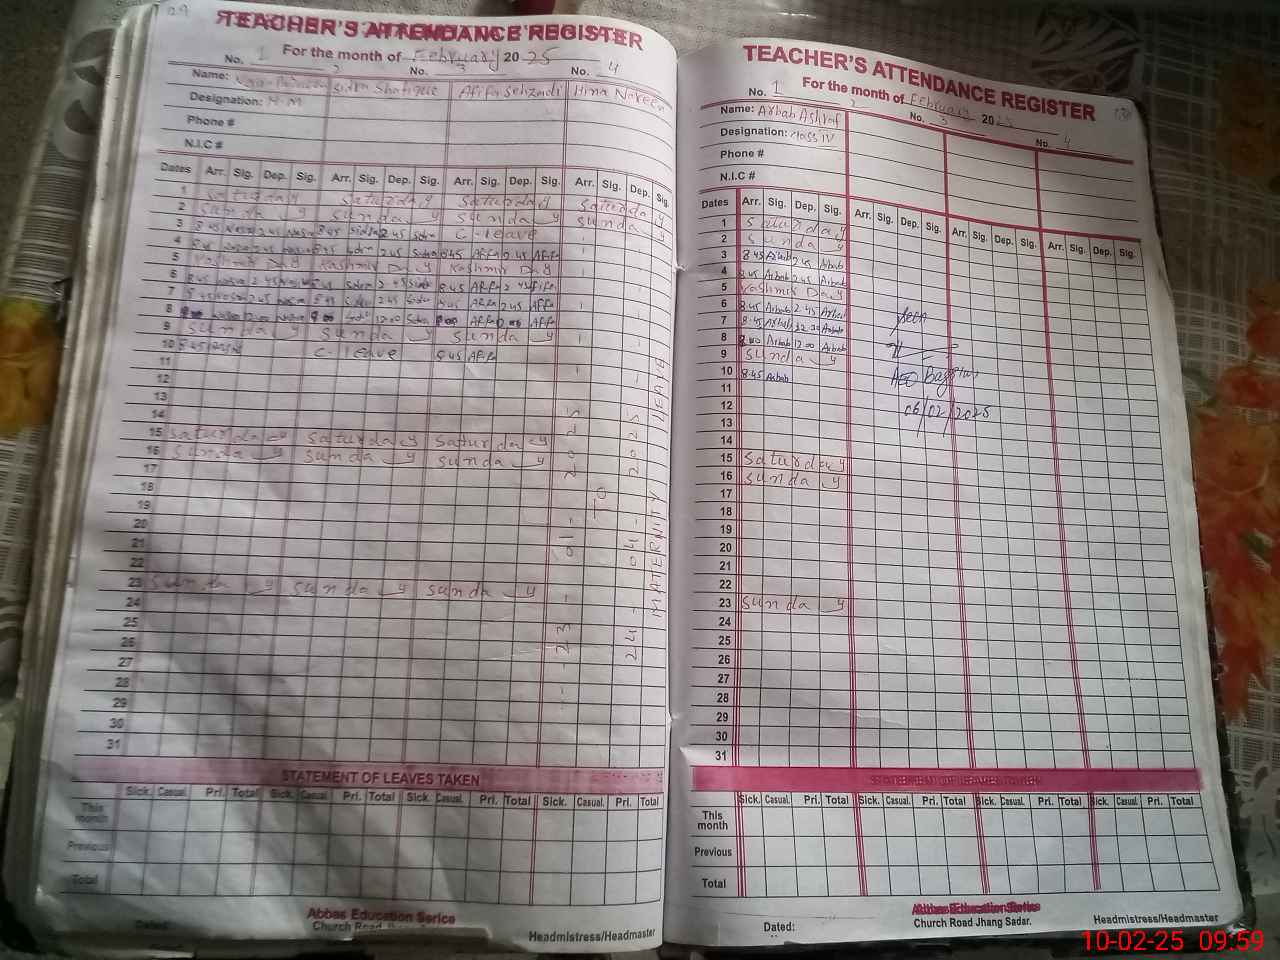 129
TEACHER'S ATTENDANCE REGISTER
For the month of February 2025
No. 1 2 No. 3 No. 4
Name: Sidra Shafique Afifa Sehzadi Hina Noreen
Designation: H.M
Phone #
N.I.C #
Dates Arr. Sig. Dep. Sig. Arr. Sig. Dep. Sig. Arr. Sig. Dep. Sig. Arr. Sig. Dep. Sig.
1 Saturday Saturday Saturday Saturday
2 Sunday Sunday Sunday Sunday
3 8 45 2 45 8 45 Sidra 2 45 Sidra C-leave
4 8 45 2 45 8 45 Sidra 2 45 Sidra 8 45 Afifa 2 45 Afifa
5 Kashmir Day Kashmir Day Kashmir Day
6 8 45 2 45 8 45 Sidra 2 45 Sidra 8 45 Afifa 2 45 Afifa
7 8 45 2 45 8 45 Sidra 2 45 Sidra 8 45 Afifa 2 45 Afifa
8 12 00 Sidra 12 00 Sidra Afifa Afifa
9 Sunday Sunday Sunday
10 8 45 C-leave 8 45 Afifa
11
12
13
14
15 Saturday Saturday Saturday
16 Sunday Sunday Sunday
17
18
19
20
21
22
23 Sunday Sunday Sunday
24
25
26
27
28
29
30
31
23-01-2025
TO
24-04-2025
MATERNITY LEAVE
STATEMENT OF LEAVES TAKEN
Sick. Casual. Pri. Total Sick. Casual. Pri. Total Sick. Casual. Pri. Total Sick. Casual. Pri. Total
This month
Previous
Total
Abbas Education Serice
Church Road Jhang Sadar.
Dated:
Headmistress/Headmaster
TEACHER'S ATTENDANCE REGISTER
130
For the month of February 2025
No. 1 2 No. 3 No. 4
Name: Arbab Ashraf
Designation: Class IV
Phone #
N.I.C #
Dates Arr. Sig. Dep. Sig. Arr. Sig. Dep. Sig. Arr. Sig. Dep. Sig. Arr. Sig. Dep. Sig.
1 Saturday
2 Sunday
3 8 45 Arbab 2 45 Arbab
4 8 45 Arbab 2 45 Arbab
5 Kashmir Day
6 8 45 Arbab 2 45 Arbab
7 8 45 Arbab 12 30 Arbab
8 8 00 Arbab 12 00 Arbab
9 Sunday
10 8 45 Arbab
11
12
13
14
15 Saturday
16 Sunday
17
18
19
20
21
22
23 Sunday
24
25
26
27
28
29
30
31
Seen
AEO
06/02/2025
STATEMENT OF LEAVES TAKEN
Sick. Casual. Pri. Total Sick. Casual. Pri. Total Sick. Casual. Pri. Total Sick. Casual. Pri. Total
This month
Previous
Total
Abbas Education Serice
Church Road Jhang Sadar.
Dated:
Headmistress/Headmaster
10-02-25 09:59